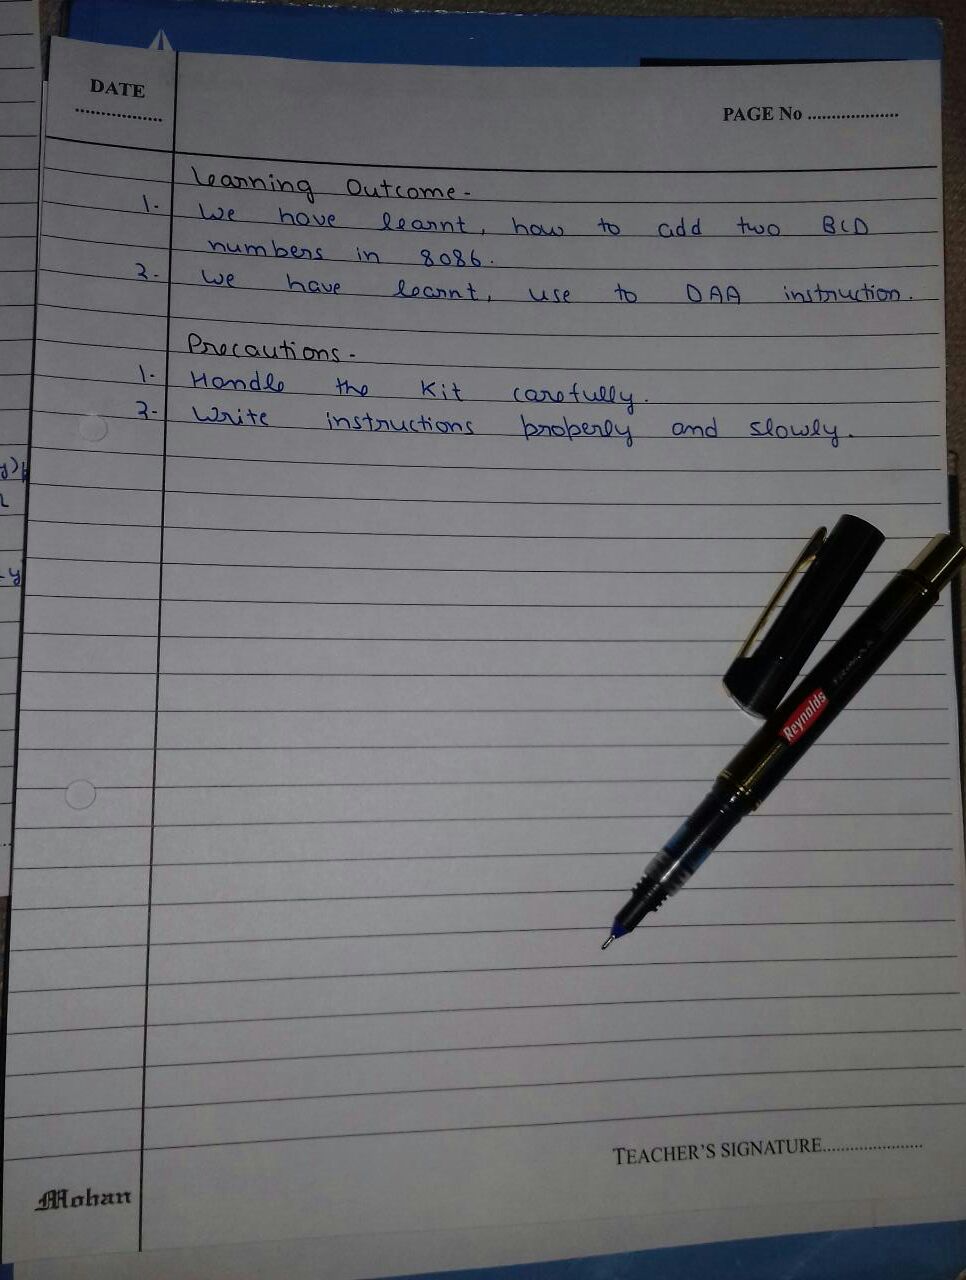 DATE
PAGE No
Learning Outcome -
1. We have learnt, how to add two BCD
numbers in 8086.
2. We have learnt, use to DAA instruction.
Precautions -
1. Handle the Kit carefully.
2. Write instructions properly and slowly.
Reynolds
TEACHER'S SIGNATURE
Mohan